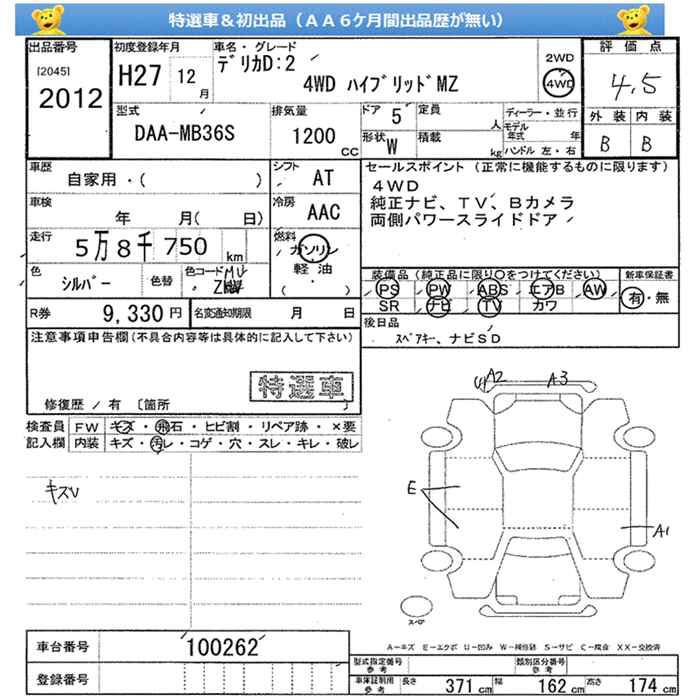 特選車&初出品(AA6ケ月間出品歴が無い)
出品番号 [2045] 2012
初度登録年月 H27 12 月
車名・グレード デリカD:2 4WD ハイブリッドMZ
2WD 4WD
評価点 4.5
外装 内装
B B
型式 DAA-MB36S
排気量 1200 CC
ドア 5
形状 W
定員 人
積載 kg
ディーラー・並行
モデル年式 年
ハンドル 左・右
車歴 自家用・( )
シフト AT
車検 年 月( 日)
冷房 AAC
走行 5万8千750 km
燃料 ガソリン 軽油 ( )
色 シルバー 色替 色コード
セールスポイント(正常に機能するものに限ります)
4WD
純正ナビ、TV、Bカメラ
両側パワースライドドア
装備品(純正品に限り○をつけてください)
PS PW ABS エアB AW
SR ナビ TV カワ
新車保証書
有・無
R券 9,330円 名変通知期限 月 日
後日品
スペアキー、ナビSD
注意事項申告欄(不具合内容等は具体的に記入して下さい)
特選車
修復歴/有 〔箇所 〕
検査員記入欄
FW キズ・飛石・ヒビ割・リペア跡・×要
内装 キズ・汚レ・コゲ・穴・スレ・キレ・破レ
キズU
A2 A3
E
A1
スペア
A-キズ E-エクボ U-凹み W-補修跡 S-サビ C-腐食 XX-交換済
車台番号 100262
登録番号
型式指定番号 参考 類別区分番号 参考
車庫証明用 参考 長さ 371 cm 幅 162 cm 高さ 174 cm